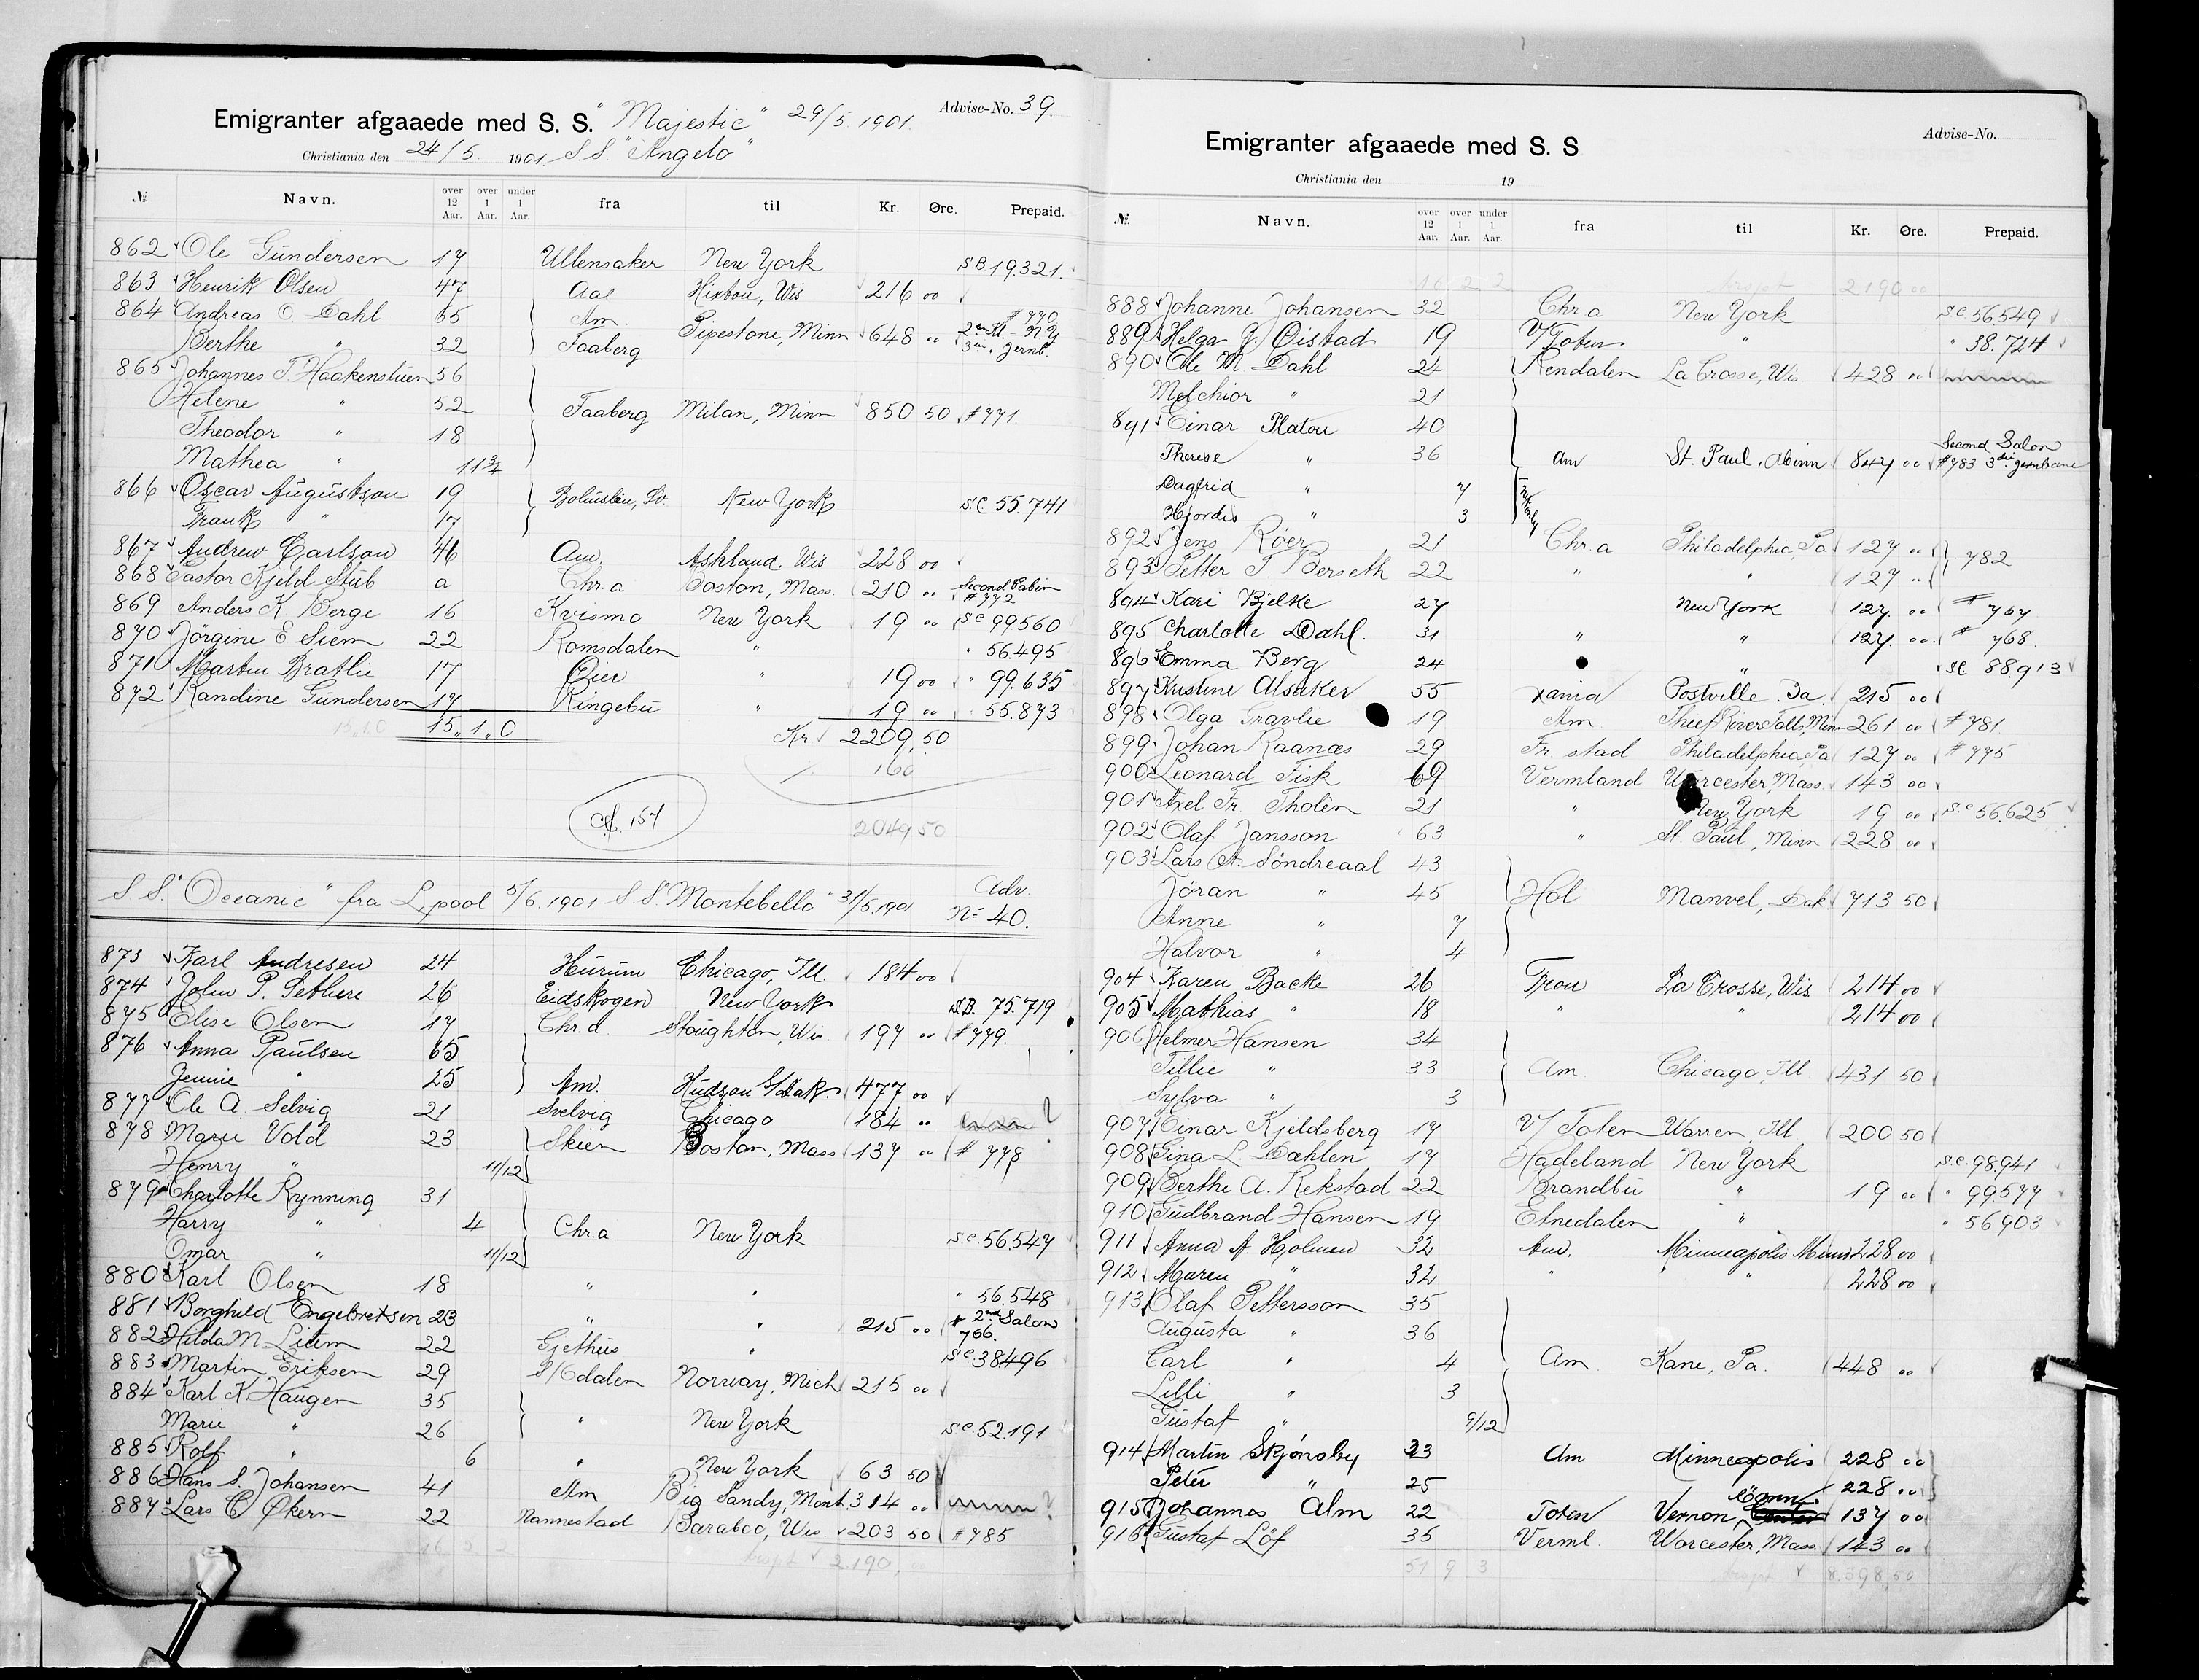 Emigranter afgaaede med S. S. "Majestic" 29/5 1901. Advise-No. 39.
Christiania den 24/5 1901. S.S. "Angelo"
№ Navn. over 12 Aar. over 1 Aar. under 1 Aar. fra til Kr. Øre. Prepaid.
862 Ole Gundersen 17 Ullensaker New York SB 19321.
863 Henrik Olsen 47 Aal Hixton, Wis 216 00
864 Andreas O Dahl 65 Am. Pipestone, Minn 648 " # 770
Berthe " 32 Faaberg
865 Johannes T. Haakenstuen 56
Helene " 52 Faaberg Milan, Minn 850 50 # 771.
Theodor " 18
Mathea " 11 3/4
866 Oscar Augustson 19 New York S.C. 55.741
Frank " 17
867 Andrew Carlson 46 Am. Ashland. Wis 228 00
868 Pastor Kjeld Stub a Chr.a Boston, Mass. 210 " Second Cabin # 772
869 Anders K Berge 16 Kvismo New York 19 " SC 99560
870 Jörgine E Siem 22 Romsdalen " " 56.495
871 Martin Bratlie 17 Øier " 19 00 " 99.635
872 Randine Gundersen 17 Ringebu " 19 " " 55.873
15 " 1 " 0 Kr 2209.50
160
cf. 157
2049 50
S.S. "Oceanic" fra L.pool 5/6.1901 S.S. "Montebello" 31/5.1901 Adv. No 40.
873 Karl Andresen 24 Hurum Chicago, Ill. 184 00
874 John P. Sethere 26 Eidskogen New York S.B. 75.719
875 Elise Olsen 17 Chr.a Stoughton, Wis. 197 " # 779.
876 Anna Paulsen 65
Jennie " 25 Am. Hudson S/Dak. 477 00
877 Ole A. Selvig 21 Svelvig Chicago 184 " ?
878 Marie Vold 23 Skien Boston, Mass 137 " # 778
Henry " 11/12
879 Charlotte Rynning 31
Harry " 4 Chr.a New York S.C. 56.547
Omar " 11/12
880 Karl Olsen 18 " " " 56.548
881 Borghild Engebretsen 23 " " 215 " # 2nd Salon 766.
882 Hilda M. Liem 22 Gjethus " SC 38496
883 Martin Eriksen 29 S/Odalen Norway, Mich 215 "
884 Karl K. Haugen 35
Marie " 26 " New York SC 52.191
885 Rolf " 6 " New York 63 50
886 Hans S. Johansen 41 Am Big Sandy, Mont. 314 " ?
887 Lars C Økern 22 Nannestad Baraboo, Wis. 203 50 # 785
16 2 2 Transpt 2.190,00
Emigranter afgaaede med S. S Advise-No.
Christiania den 19
№ Navn. over 12 Aar. over 1 Aar. under 1 Aar. fra til Kr. Øre. Prepaid.
16 2 2 Transpt 2190 00
888 Johanne Johansen 32 Chr.a New York SC 56.549
889 Helga G. Øistad 19 V/Toten " " 38.724
890 Ole M Dahl 24 Rendalen La Crosse, Wis 428 "
Melchior " 21
891 Einar Platou 40
Therese " 36 Am St. Paul, Minn 847 00 Second Salon # 783 3die jernbane
Dagfrid " 7
Hjordis " 3
892 Jens Röer 21 Chr.a Philadelphia, Pa 127 " 782
893 Petter T. Berseth 22 " " 127 "
894 Kari Bjelke 27 New York 127 00 # 767
895 Charlotte Dahl. 31 " " 127 00 # 768.
896 Emma Berg 24 " SC 88913
897 Kristine Alsaker 55 Xania Postville. Ia. 215 00
898 Olga Gravlie 19 Am. Thief River Falls, Minn 261 00 # 781
899 Johan Raanæs 29 Fr.stad Philadelphia, Pa 127 " # 775
900 Leonard Fisk 69 Vermland Worcester, Mass. 143 00
901 Axel Fr. Tholin 21 " New York 19 " S.C 56.625
902 Olaf Jansson 63 " St. Paul, Minn 228 00
903 Lars A. Söndreaal 43
Jöran " 45 Hol Manvel, Dak 713 50
Anne " 7
Halvor " 4
904 Karen Backe 26 Tron La Crosse, Wis. 214 00
905 Mathias " 18 " " 214 00
906 Helmer Hansen 34
Tillie " 33 Am. Chicago, Ill 431 50
Sylva " 3
907 Einar Kjeldsberg 17 V/Toten Warren, Ill 200 50
908 Gina L Dahlen 17 Hadeland New York S.C. 98.941
909 Berthe A. Rekstad 22 Brandbu " 19 00 " 99577
910 Gudbrand Hansen 19 Etnedalen " " 56903
911 Anna A. Holmen 32 Am. Minneapolis Minn 228 00
912 Maren " 32 " " 228 00
913 Olaf Pettersson 35
Augusta " 36
Carl " 4 Am. Kane, Pa. 448 00
Lilli " 3
Gustaf " 9/12
914 Martin Skjönsby 23 Am Minneapolis 228 00
Peter " 25 228 00
915 Johannes Alm 22 Toten Vernon, Conn. 137 00
916 Gustaf Löf 35 Verml. Worcester, Mass. 143 00
51 9 3 Transpt 8.398,50